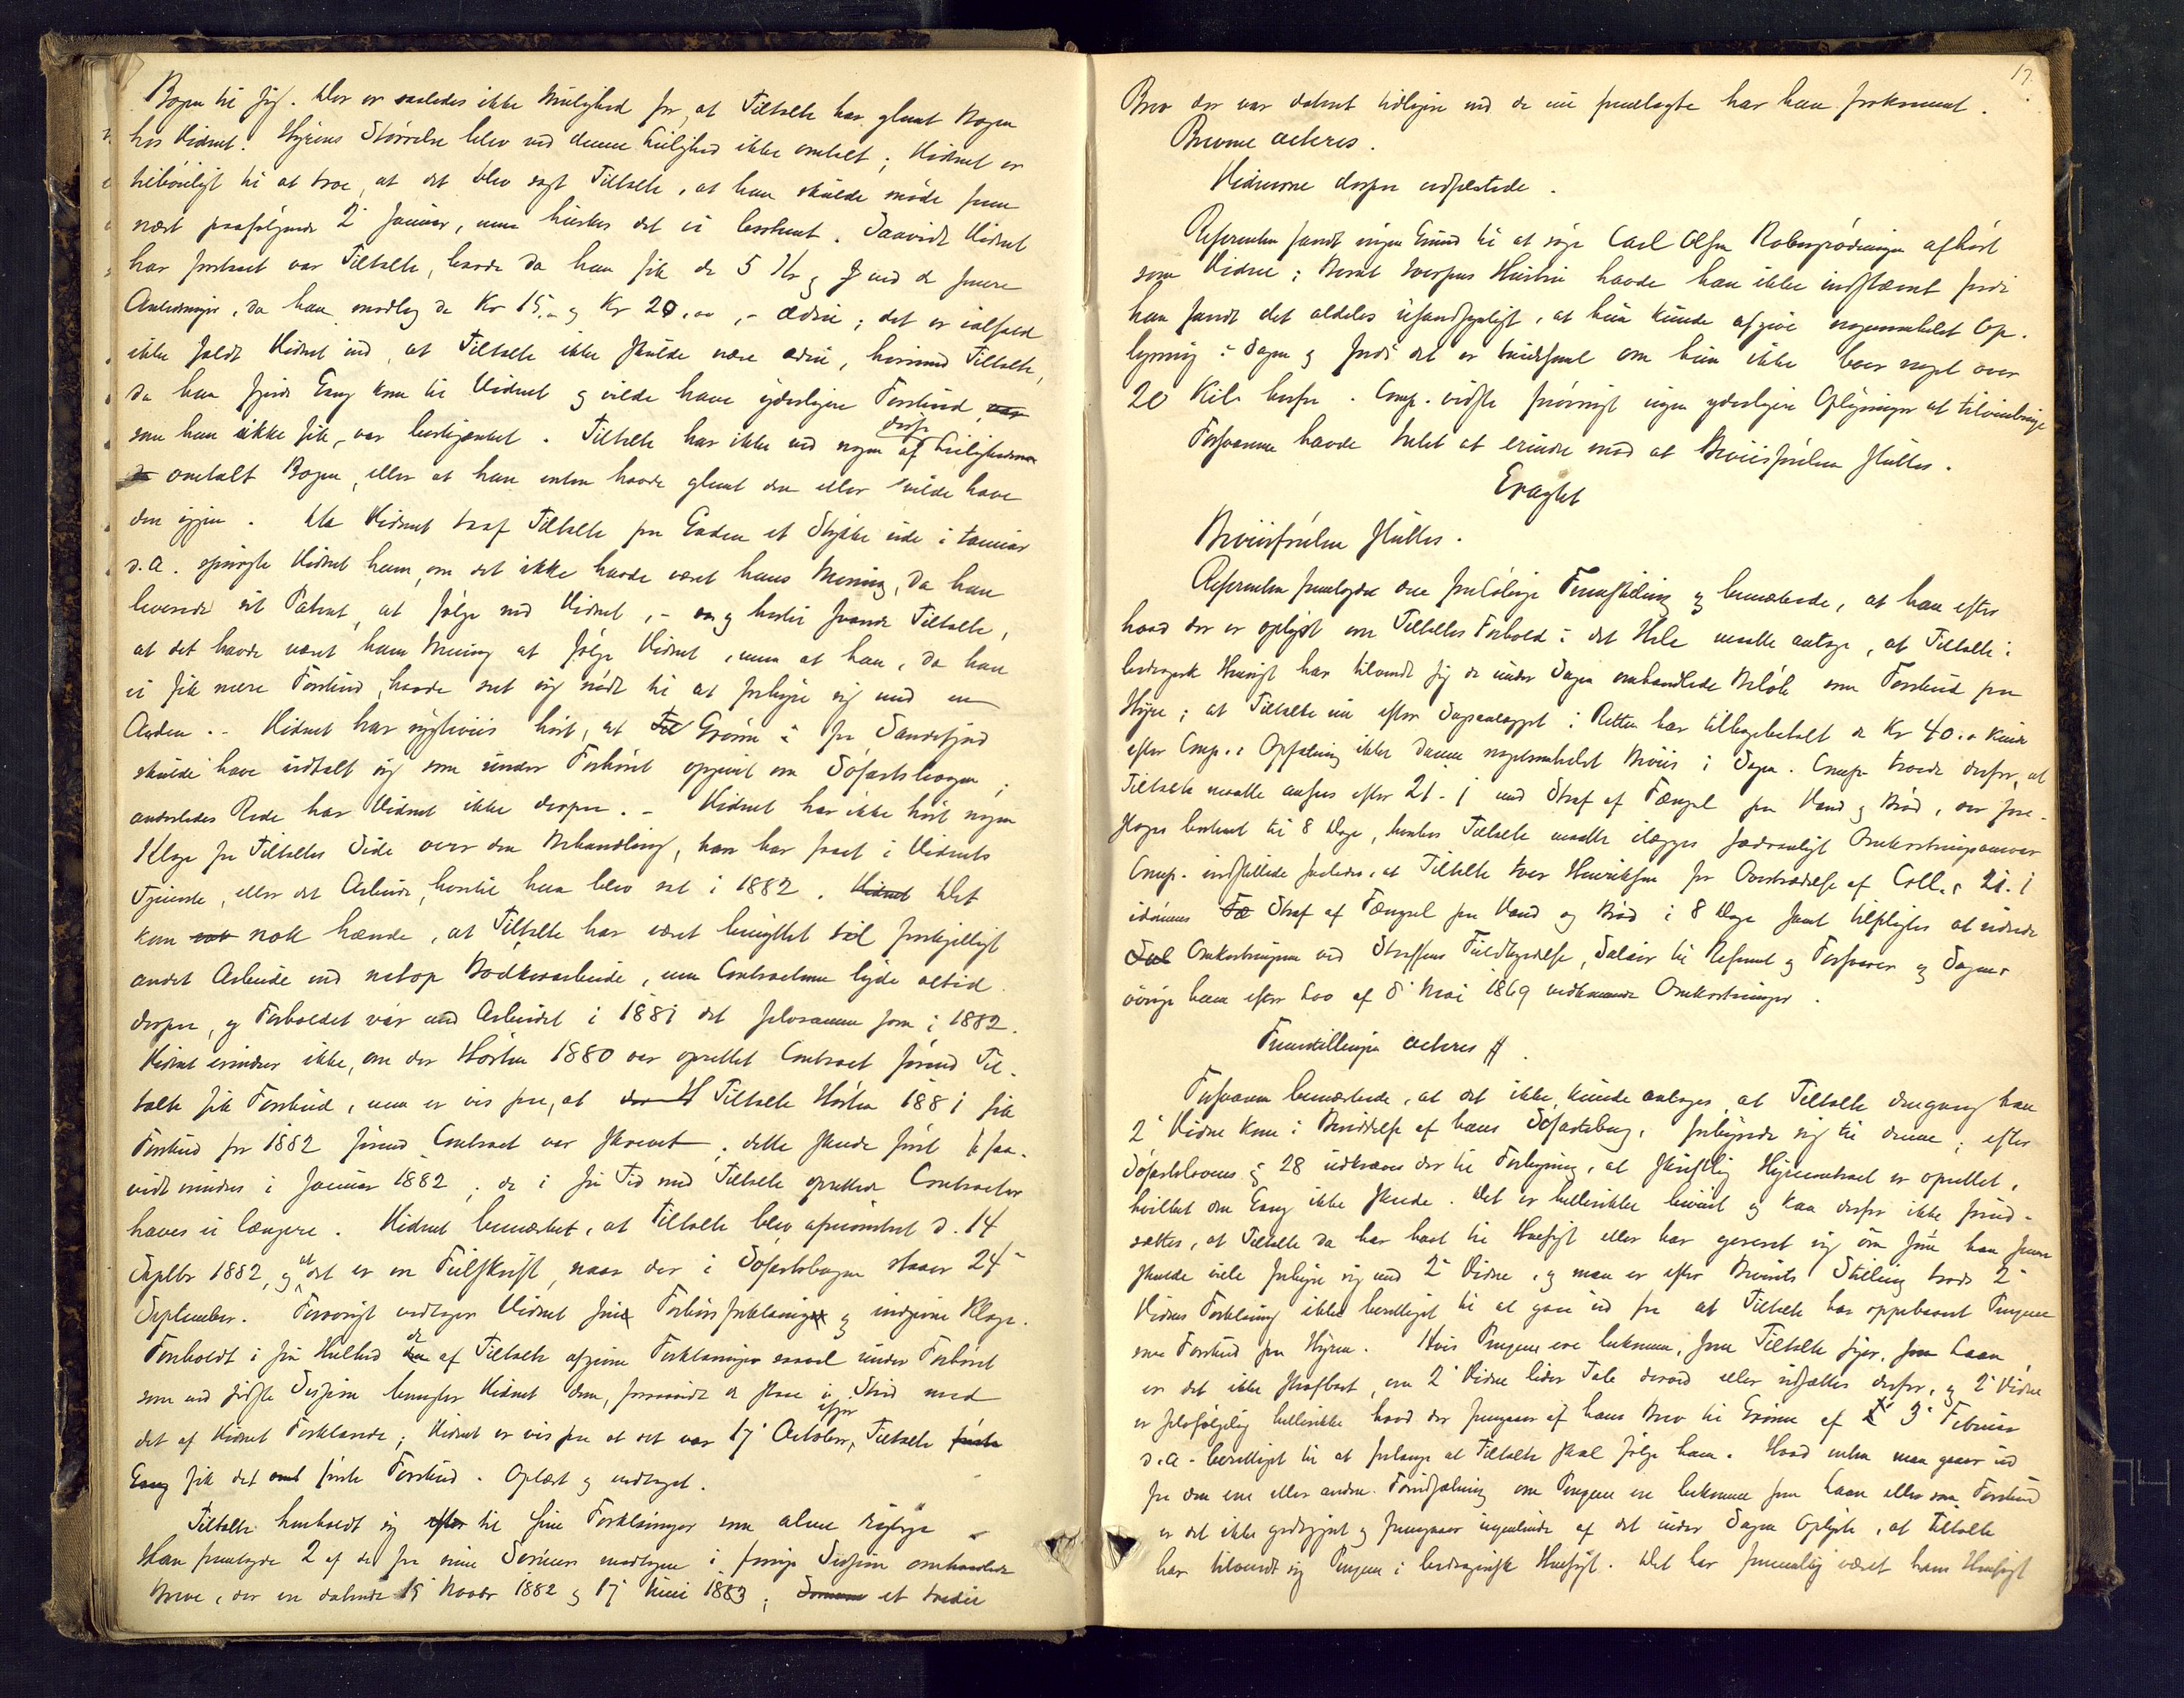 Bogen til sig. Der er saaledes ikke Mulighed for, at Tiltalte har glemt Bogen
hos Vidnet. Hyrens Størrelse blev ved denne Leilighed ikke omtalt; Vidnet er
tilbøieligt til at troe, at det blev sagt Tiltalte, at han skulde møde frem
næst paafølgende 2 Januar, men husker det ei bestemt. Saavidt Vidnet
har forstaaet var Tiltalte, baade da han fik de 5 Kr og ved de senere
Anledninger, da han modtog de Kr 15,- og Kr 20,00, - ædru; det er ialfald
ikke faldt Vidnet ind, at Tiltalte ikke skulde være ædru, hvorimod Tiltalte,
da han fjerde Gang kom til Vidnet og vilde have yderligere Forskud,
som han ikke fik, var beskjænket. Tiltalte har ikke ved nogen af Leilighederne
omtalt Bogen, eller at han enten havde glemt den eller vilde have
den igjen. Da Vidnet traf Tiltalte paa Gaden et Stykke ude i Januar
d.A. spurgte Vidnet ham, om det ikke havde været hans Mening, da han
leverede sit Patent, at følge med Vidnet, - og hertil svarede Tiltalte,
at det havde været hans Mening at følge Vidnet, men at han, da han
ei fik mere Forskud, havde seet sig nødt til at forhyre sig med en
Anden. - Vidnet har rygteviis hørt, at Grønn i fra Sandefjord
skulde have udtalt sig som under Forhøret opgivet om Søfartsbogen;
anderledes Rede har Vidnet ikke derpaa. - Vidnet har ikke hørt nogen
Klage fra Tiltaltes Side over den Behandling, han har faaet i Vidnets
Tjeneste, eller det Arbeide, hvortil han blev sat i 1882. Det
kan nok hænde, at Tiltalte har været benyttet til forskjelligt
andet Arbeide end netop Bødkerarbeide, men Contracterne lyde altid
derpaa, og Forholdet var med Arbeidet i 1881 det selvsamme som i 1882.
Vidnet erindrer ikke, om der Høsten 1880 var oprettet Contract førend Til-
talte fik Forskud, men er vis paa, at Tiltalte Høsten 1881 fik
Forskud for 1882 førend Contract var skrevet; dette skede først saa-
vidt mindes i Januar 1882; de i sin Tid med Tiltalte oprettede Contracter
haves ei længere. Vidnet bemærket, at Tiltalte blev afmønstret d. 14
Septbr 1882, og at det er en Feilskrift, naar der i Søfartsbogen staaer 24
September. Forøvrigt vedtager Vidnet sin Forhørsforklaring og indgivne Klage.
Forholdt i sin Helhed de af Tiltalte afgivne Forklaringer saavel under Forhøret
som ved sidste Session benegter Vidnet dem, forsaavidt de staae i Strid med
det af Vidnet Forklarede; Vidnet er vis paa at det var 17 October, Tiltalte
Gang fik det første Forskud. Oplæst og vedtaget.
Tiltalte henholdt sig til sine Forklaringer som alene rigtige
Han fremlagde 2 af de fra mine Svenner modtagne i forrige Session omhandlede
Breve, der ere daterede 15 Novbr 1882 og 17 Juni 1883; et tredie
17.
Brev der var dateret tidligere end de nu fremlagte har han forkommet.
Brevene acteres.
Vidnerne derpaa udfæstede.
Referenten fandt ingen Grund til at søge Carl Olsen afhørt
som Vidne; Hustru havde han ikke indstævnt fordi
han fandt det aldeles usandsynligt, at hun kunde afgive nogensomhelst Op-
lysning i Sagen og fordi det er tvivlsomt om hun ikke boer noget over
20 Kil. herfra. Comp. vidste forøvrigt ingen yderligere Oplysninger at tilveiebringe
Forsvareren havde Intet at erindre mod at Bevisførelsen sluttes.
Eragtet
Beviisførelsen sluttes.
Referenten fremlagde en foreløbig Fremstilling og bemærkede, at han efter
hvad der er oplyst om Tiltaltes Forhold i det Hele maatte antage, at Tiltalte i
bedragersk Hensigt har tilvendt sig de under Sagen omhandlede Beløb som Forskud paa
Hyre; at Tiltalte nu efter Sagsanlægget i Retten har tilbagebetalt de Kr 40.- kunde
efter Comp.s Opfatning ikke danne nogetsomhelst Beviis i Sagen. Comp. troede derfor, at
Tiltalte maatte ansees efter 21 - 1 med Straf af Fængsel paa Vand og Brød, der fore-
sloges bestemt til 8 Dage, hvorhos Tiltalte maatte ilægges sædvanligt Omkostningsansvar
Comp. indstillede saaledes, at Tiltalte Iver Henriksen for Overtrædelse af Crll.s 21 - 1
idømmes Straf af Fængsel paa Vand og Brød i 8 Dage samt tilpligtes at udrede
Omkostningerne ved Straffens Fuldbyrdelse, Salair til Referent og Forsvarer og Sagens
øvrige ham efter Lov af 8 Mai 1869 vedkommende Omkostninger.
Fremstillingen acteres
Forsvareren bemærkede, at det ikke kunde antages, at Tiltalte dengang han
2 Vidne kom i Besiddelse af hans Søfartsbog, forhyrede sig til denne; efter
Søfartslovens § 28 udkræves der til Forhyring, at skriftlig Hyrecontract er oprettet,
hvilket den Gang ikke skede. Det er hellerikke beviist og kan derfor ikke forud-
sættes, at Tiltalte da har havt til Hensigt eller har gereret sig om som han
skulde ville forhyre sig med 2 Vidne, og man er efter Bevisets Stilling trods 2
Vidnes Forklaring ikke berettiget til at gaae ud fra at Tiltalte har oppebaaret Pengene
som Forskud paa Hyren. Hvis Pengene ere bekomne, som Tiltalte siger, som Laan
er det ikke strafbart, om 2 Vidne lider Tab derved eller udsættes derfor, og 2 Vidne
er selvfølgelig hellerikke hvad der fremgaaer af hans Brev til Grønn af 3 Februar
d.A. - berettiget til at forlange at Tiltalte skal følge ham. Hvad enten man gaaer ud
fra den ene eller anden Forudsætning om Pengene ere bekomne som Laan eller som Forskud
er det ikke godtgjort og fremgaaer ingenlunde af det under Sagen Oplyste, at Tiltalte
har tilvendt sig Pengene i bedragersk Hensigt. Det har formentlig været hans Hensigt